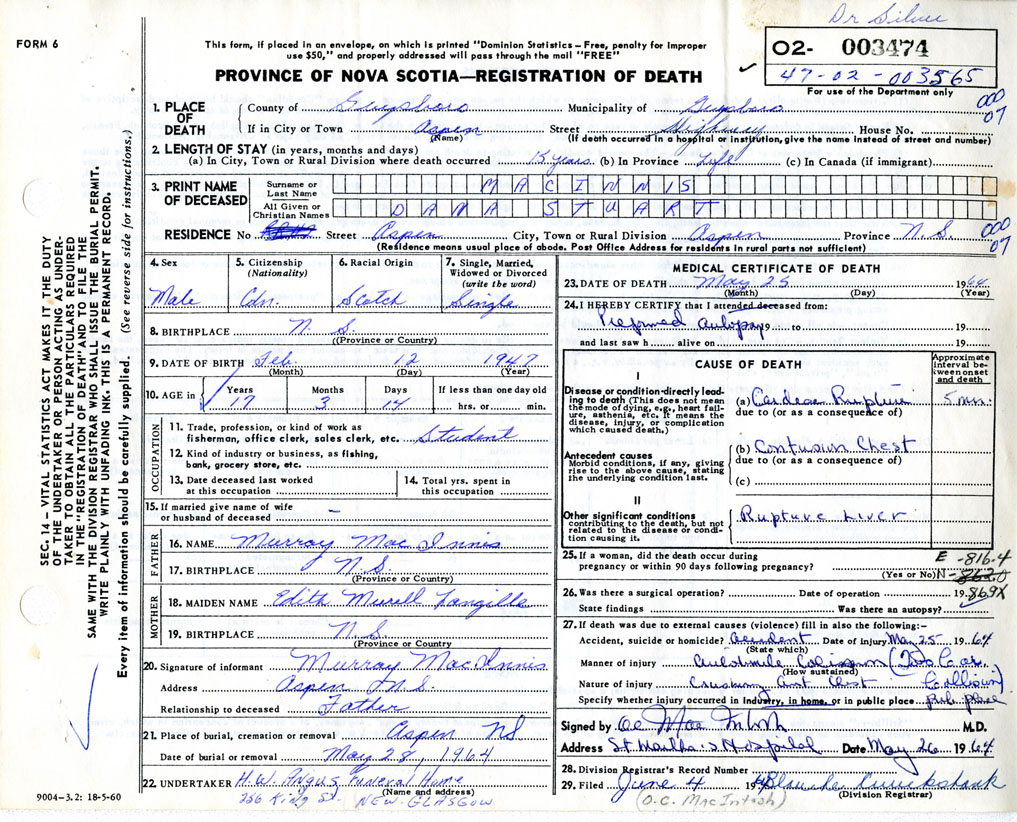 Dr Silver
FORM 6
This form, if placed in an envelope, on which is printed "Dominion Statistics – Free, penalty for improper
use $50," and properly addressed will pass through the mail "FREE"
PROVINCE OF NOVA SCOTIA—REGISTRATION OF DEATH
02- 003474
47-02-003565
For use of the Department only
000
07
1. PLACE OF DEATH
County of Guysboro Municipality of Guysboro
If in City or Town Aspen (Name) Street Highway House No.
(If death occurred in a hospital or institution, give the name instead of street and number)
2. LENGTH OF STAY (in years, months and days)
(a) In City, Town or Rural Division where death occurred 15 years (b) In Province Life (c) In Canada (if immigrant)
3. PRINT NAME OF DECEASED
Surname or Last Name MACINNIS
All Given or Christian Names DANA STUART
RESIDENCE No Street Aspen City, Town or Rural Division Aspen Province N.S.
(Residence means usual place of abode. Post Office Address for residents in rural parts not sufficient)
000
07
4. Sex Male
5. Citizenship (Nationality) Cdn.
6. Racial Origin Scotch
7. Single, Married, Widowed or Divorced (write the word) Single
8. BIRTHPLACE N. S.
(Province or Country)
9. DATE OF BIRTH Feb. 12 1947
(Month) (Day) (Year)
10. AGE in Years 17 Months 3 Days 14 If less than one day old hrs. or min.
OCCUPATION
11. Trade, profession, or kind of work as
fisherman, office clerk, sales clerk, etc. Student
12. Kind of industry or business, as fishing,
bank, grocery store, etc.
13. Date deceased last worked at this occupation
14. Total yrs. spent in this occupation
15. If married give name of wife
or husband of deceased –
FATHER
16. NAME Murray Mac Innis
17. BIRTHPLACE N.S.
(Province or Country)
MOTHER
18. MAIDEN NAME Edith Murell Langille
19. BIRTHPLACE N.S.
(Province or Country)
20. Signature of informant Murray MacInnis
Address Aspen N.S.
Relationship to deceased Father
21. Place of burial, cremation or removal Aspen NS
Date of burial or removal May 28, 1964
22. UNDERTAKER H.W. Angus Funeral Home
(Name and address)
256 King St. NEW GLASGOW
9004–3.2: 18-5-60
MEDICAL CERTIFICATE OF DEATH
23. DATE OF DEATH May 25 1964
(Month) (Day) (Year)
24. I HEREBY CERTIFY that I attended deceased from:
Preformed autopsy 19 to 19
and last saw h alive on 19
CAUSE OF DEATH
Approximate interval between onset and death
I
Disease or condition directly leading to death (This does not mean the mode of dying, e.g., heart failure, asthenia, etc. It means the disease, injury, or complication which caused death.)
(a) Cardeac Rupture 5 min.
due to (or as a consequence of)
Antecedent causes
Morbid conditions, if any, giving rise to the above cause, stating the underlying condition last.
(b) Contusion Chest
due to (or as a consequence of)
(c)
II
Other significant conditions
contributing to the death, but not related to the disease or condition causing it.
Rupture Liver
25. If a woman, did the death occur during
pregnancy or within 90 days following pregnancy?
(Yes or No)
E -816.4
N-862.0
869X
26. Was there a surgical operation? Date of operation 19
State findings Was there an autopsy?
27. If death was due to external causes (violence) fill in also the following:–
Accident, suicide or homicide? accident Date of injury May 25 1964
(State which)
Manner of injury Automobile Collision (Two Car
(How sustained)
Collision)
Nature of injury Crushing Chest
Specify whether injury occurred in industry, in home, or in public place pub place
Signed by M.D.
Address St Martha's Hospital Date May 26 1964
28. Division Registrar's Record Number 4
29. Filed June 4 19 Blanche Cruickshank
(O.C. MacIntosh) (Division Registrar)
SEC. 14 – VITAL STATISTICS ACT MAKES IT THE DUTY
OF THE UNDERTAKER OR PERSON ACTING AS UNDER-
TAKER TO OBTAIN ALL THE PARTICULARS REQUIRED
IN THE "REGISTRATION OF DEATH" AND TO FILE THE
SAME WITH THE DIVISION REGISTRAR WHO SHALL ISSUE THE BURIAL PERMIT.
WRITE PLAINLY WITH UNFADING INK. THIS IS A PERMANENT RECORD.
Every item of information should be carefully supplied. (See reverse side for instructions.)